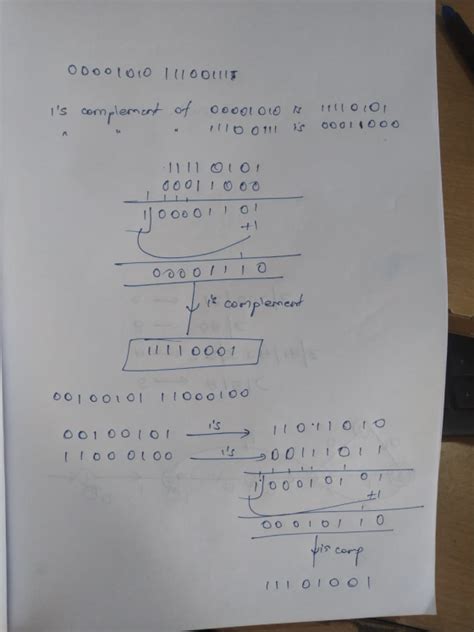 00001010 11100111
1's complement of 00001010 is 11110101
" " " 11100111 is 00011000
11110101
00011000
1 1 1 1
1 00001101
+1
00001110
1's complement
11110001
00100101 11000100
00100101 1's 11011010
11000100 1's 00111011
1 00010101
+1
00010110
1's comp
11101001